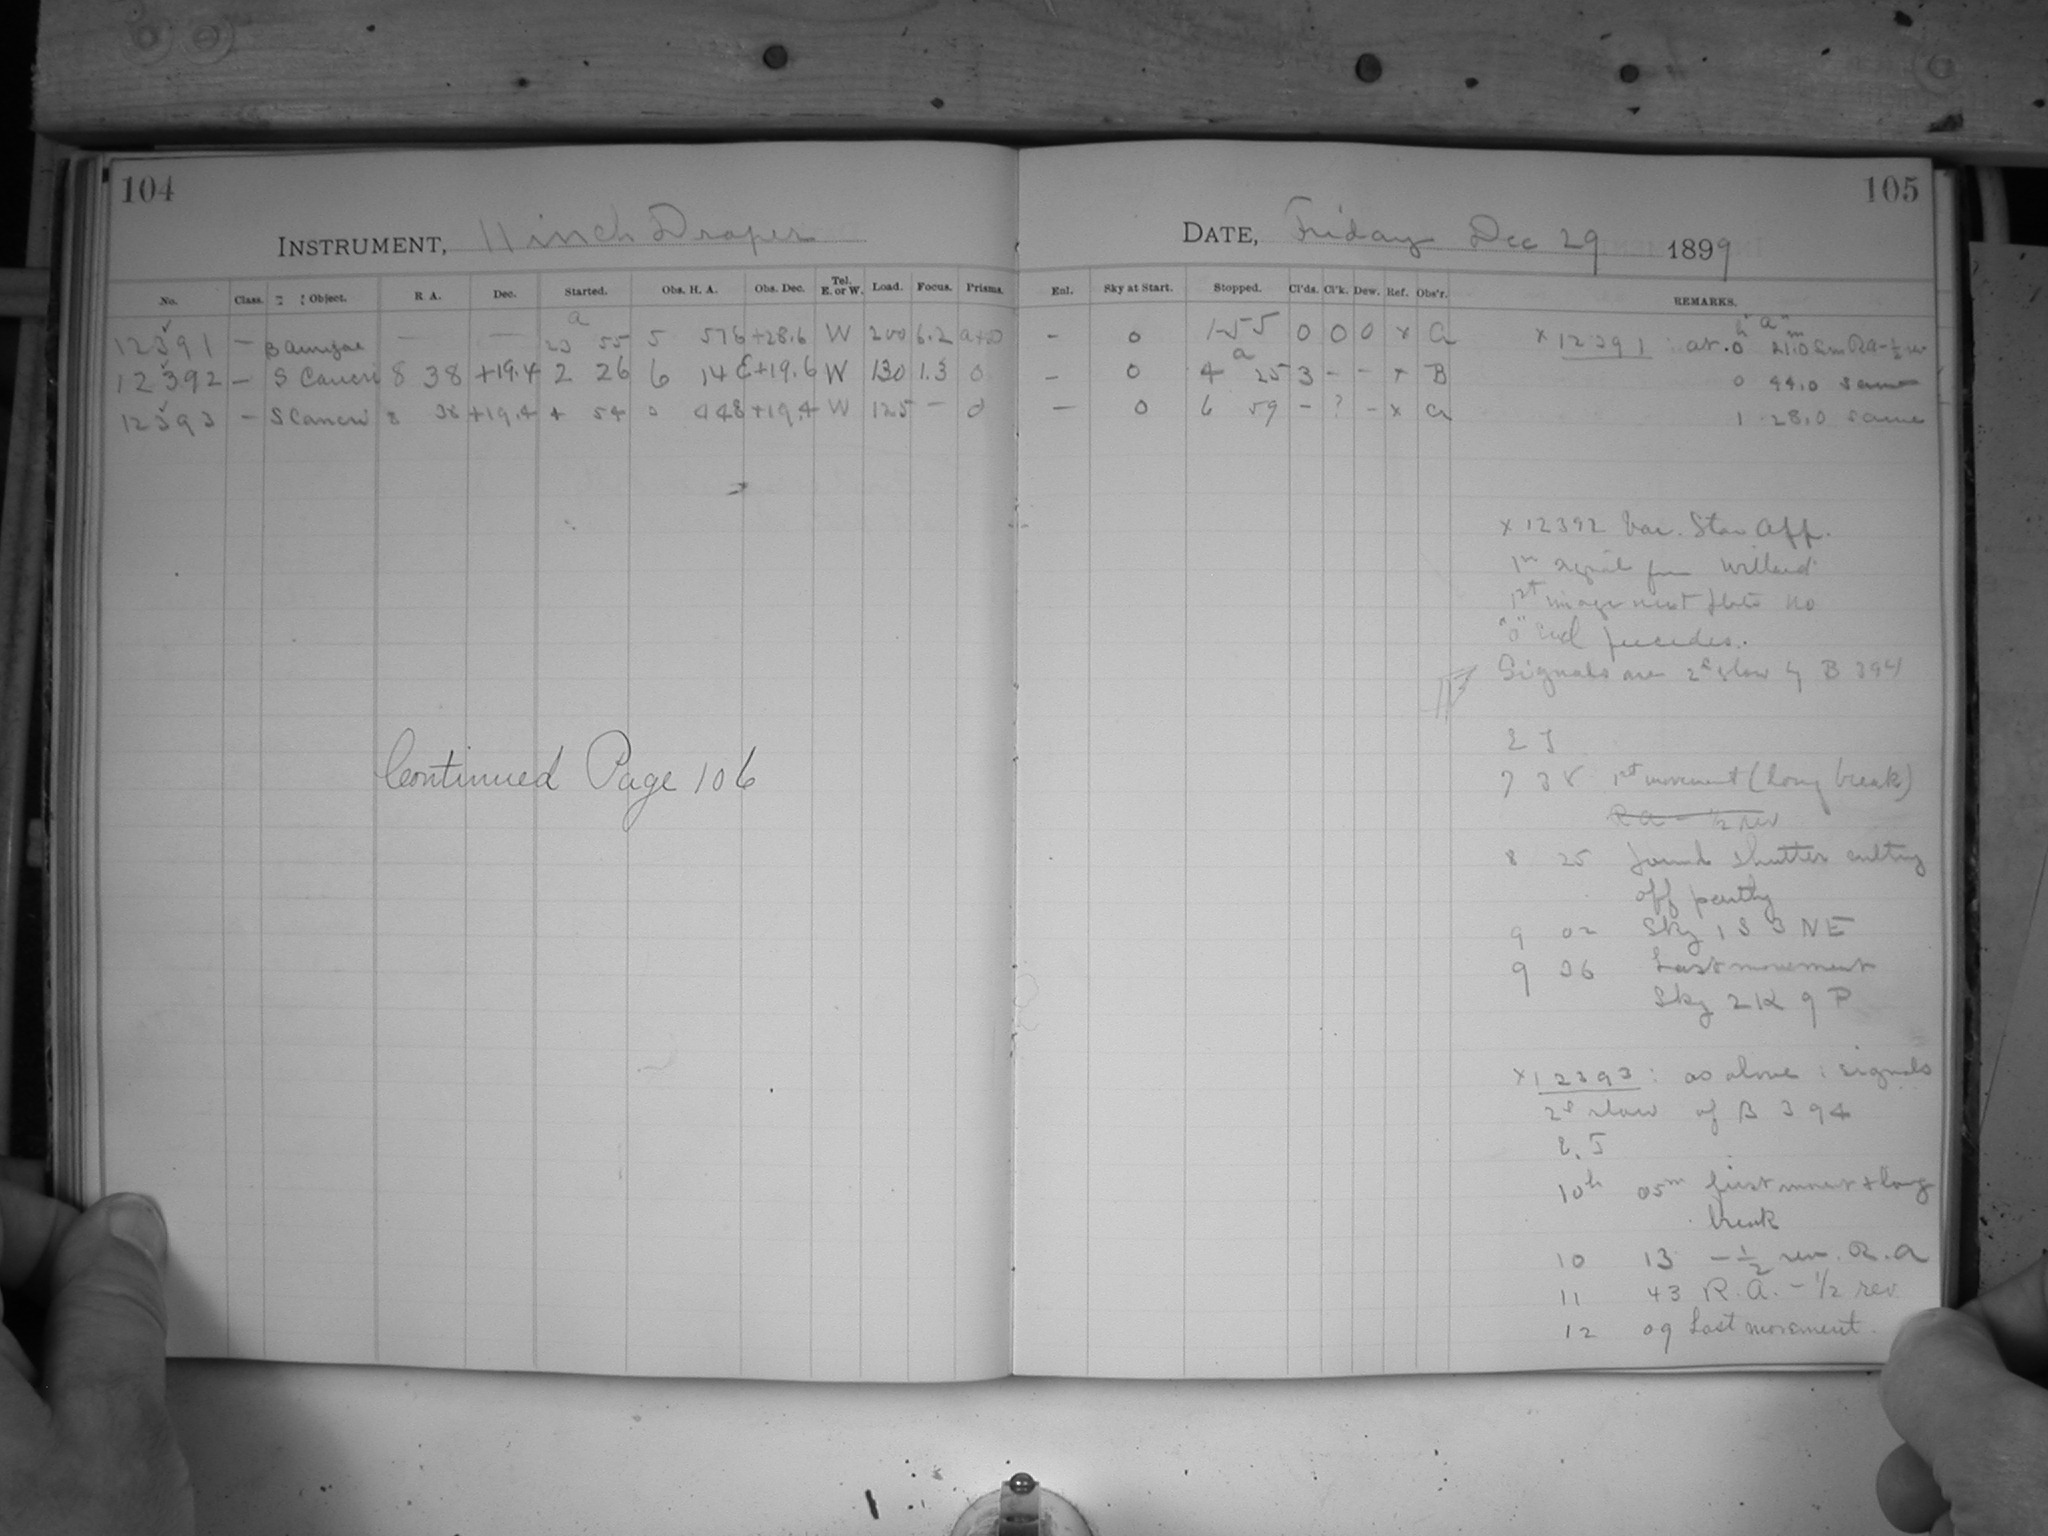 104
INSTRUMENT, 11 inch Draper
No. Class. Object. R A. Dec. Started. Obs. H. A. Obs. Dec. Tel. E. or W. Load. Focus. Prisms.
a
12391 – B Aurigae — — 23 55 5 576 +28.6 W 200 6.2
12392 – S Cancri 8 38 +19.4 2 26 6 14 E +19.6 W 130 1.3 0
12393 – S Cancri 8 38 +19.4 4 54 0 448 +19.4 W 125 – 0
Continued Page 106
105
DATE, Friday Dec 29 1899
Enl. Sky at Start. Stopped. Cl'ds. Cl'k. Dew. Ref. Obs'r. REMARKS.
– 0 1 55 0 0 0 x a x 12391 : at 0 21.0 RA – ½
a
– 0 4 25 3 – – x B 0 44.0 same
— 0 6 59 – ? – x a 1 28.0 same
x 12392 Var. Star App.
1st image next plate no
"0" End precedes.
Signals are 2s slow of B 394
E J
7 38 1st movement (long break)
RA – ½ rev
8 25 found shutter cutting
off partly
9 02 Sky 1 S 3 NE
9 36 Last movement
Sky 2 K 9 P
x 12393 : as above : signals
2s slow of B 394
E. J
10h 05m first + long
break
10 13 – ½ rev. R. A
11 43 R. A. – ½ rev
12 09 Last movement.